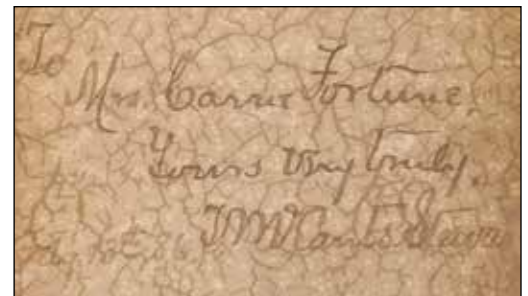 To
Mrs. Carrie Fortune.
Yours Very truly,
T. McCants Stewart